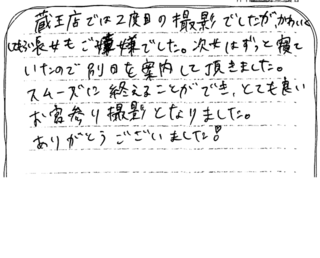 蔵王店では2度目の撮影でしたが、かわいく
長女もご機嫌でした。次女はずっと寝て
いたので別日を案内して頂きました。
スムーズに終えることができ、とても良い
お宮参り撮影となりました。
ありがとうございました!